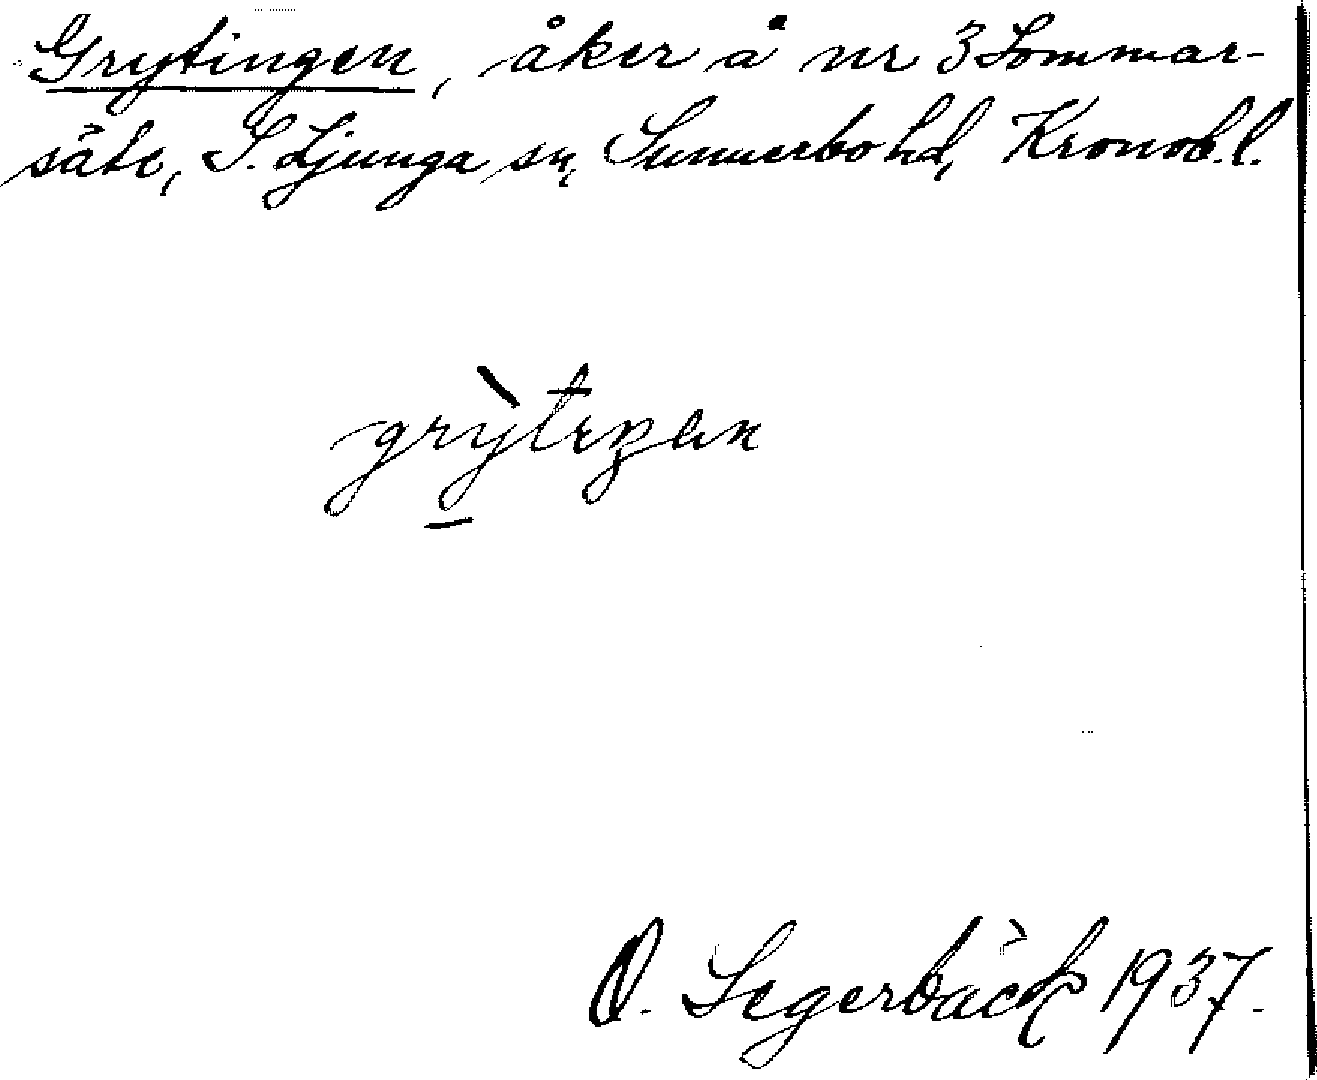 Grytingen, åker å nr 3 Sommar-
säte, S. Ljunga sn, Sunnerbo hd, Kronob. l.
O. Segerbäck 1937.